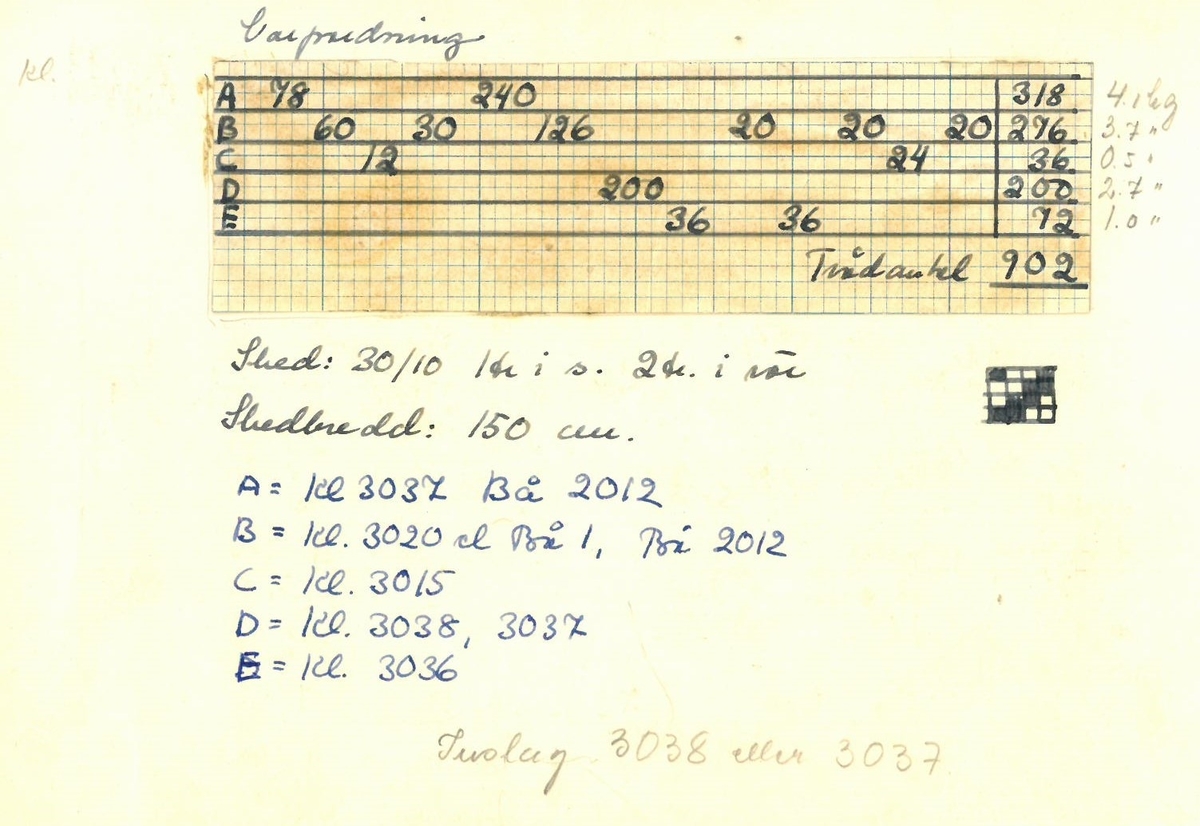 Varpordning
kl.
A 78 240 318 4.1 kg
B 60 30 126 20 20 20 276 3.7 "
C 12 24 36 0.5 "
D 200 200 2.7 "
E 36 36 72 1.0 "
Trådantal 902
Sked: 30/10 1 tr i s. 2 tr. i rör
Skedbredd: 150 cm.
A = Kl 3037 Bå 2012
B = Kl. 3020 el Bå 1, Bå 2012
C = Kl. 3015
D = Kl. 3038, 3037
E = Kl. 3036
Inslag 3038 eller 3037